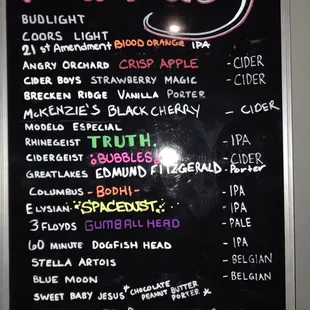 BUDLIGHT
COORS LIGHT
21st Amendment BLOOD ORANGE IPA
ANGRY ORCHARD CRISP APPLE - CIDER
CIDER BOYS STRAWBERRY MAGIC - CIDER
BRECKEN RIDGE VANILLA PORTER
McKENZIE'S BLACK CHERRY - CIDER
MODELO ESPECIAL
RHINEGEIST TRUTH. - IPA
CIDERGEIST BUBBLES - CIDER
GREATLAKES EDMUND FITZGERALD - Porter
COLUMBUS - BODHI - - IPA
ELYSIAN SPACEDUST - IPA
3 FLOYDS GUMBALL HEAD - PALE
60 MINUTE DOGFISH HEAD - IPA
STELLA ARTOIS - BELGIAN
BLUE MOON - BELGIAN
SWEET BABY JESUS * CHOCOLATE PEANUT BUTTER PORTER *